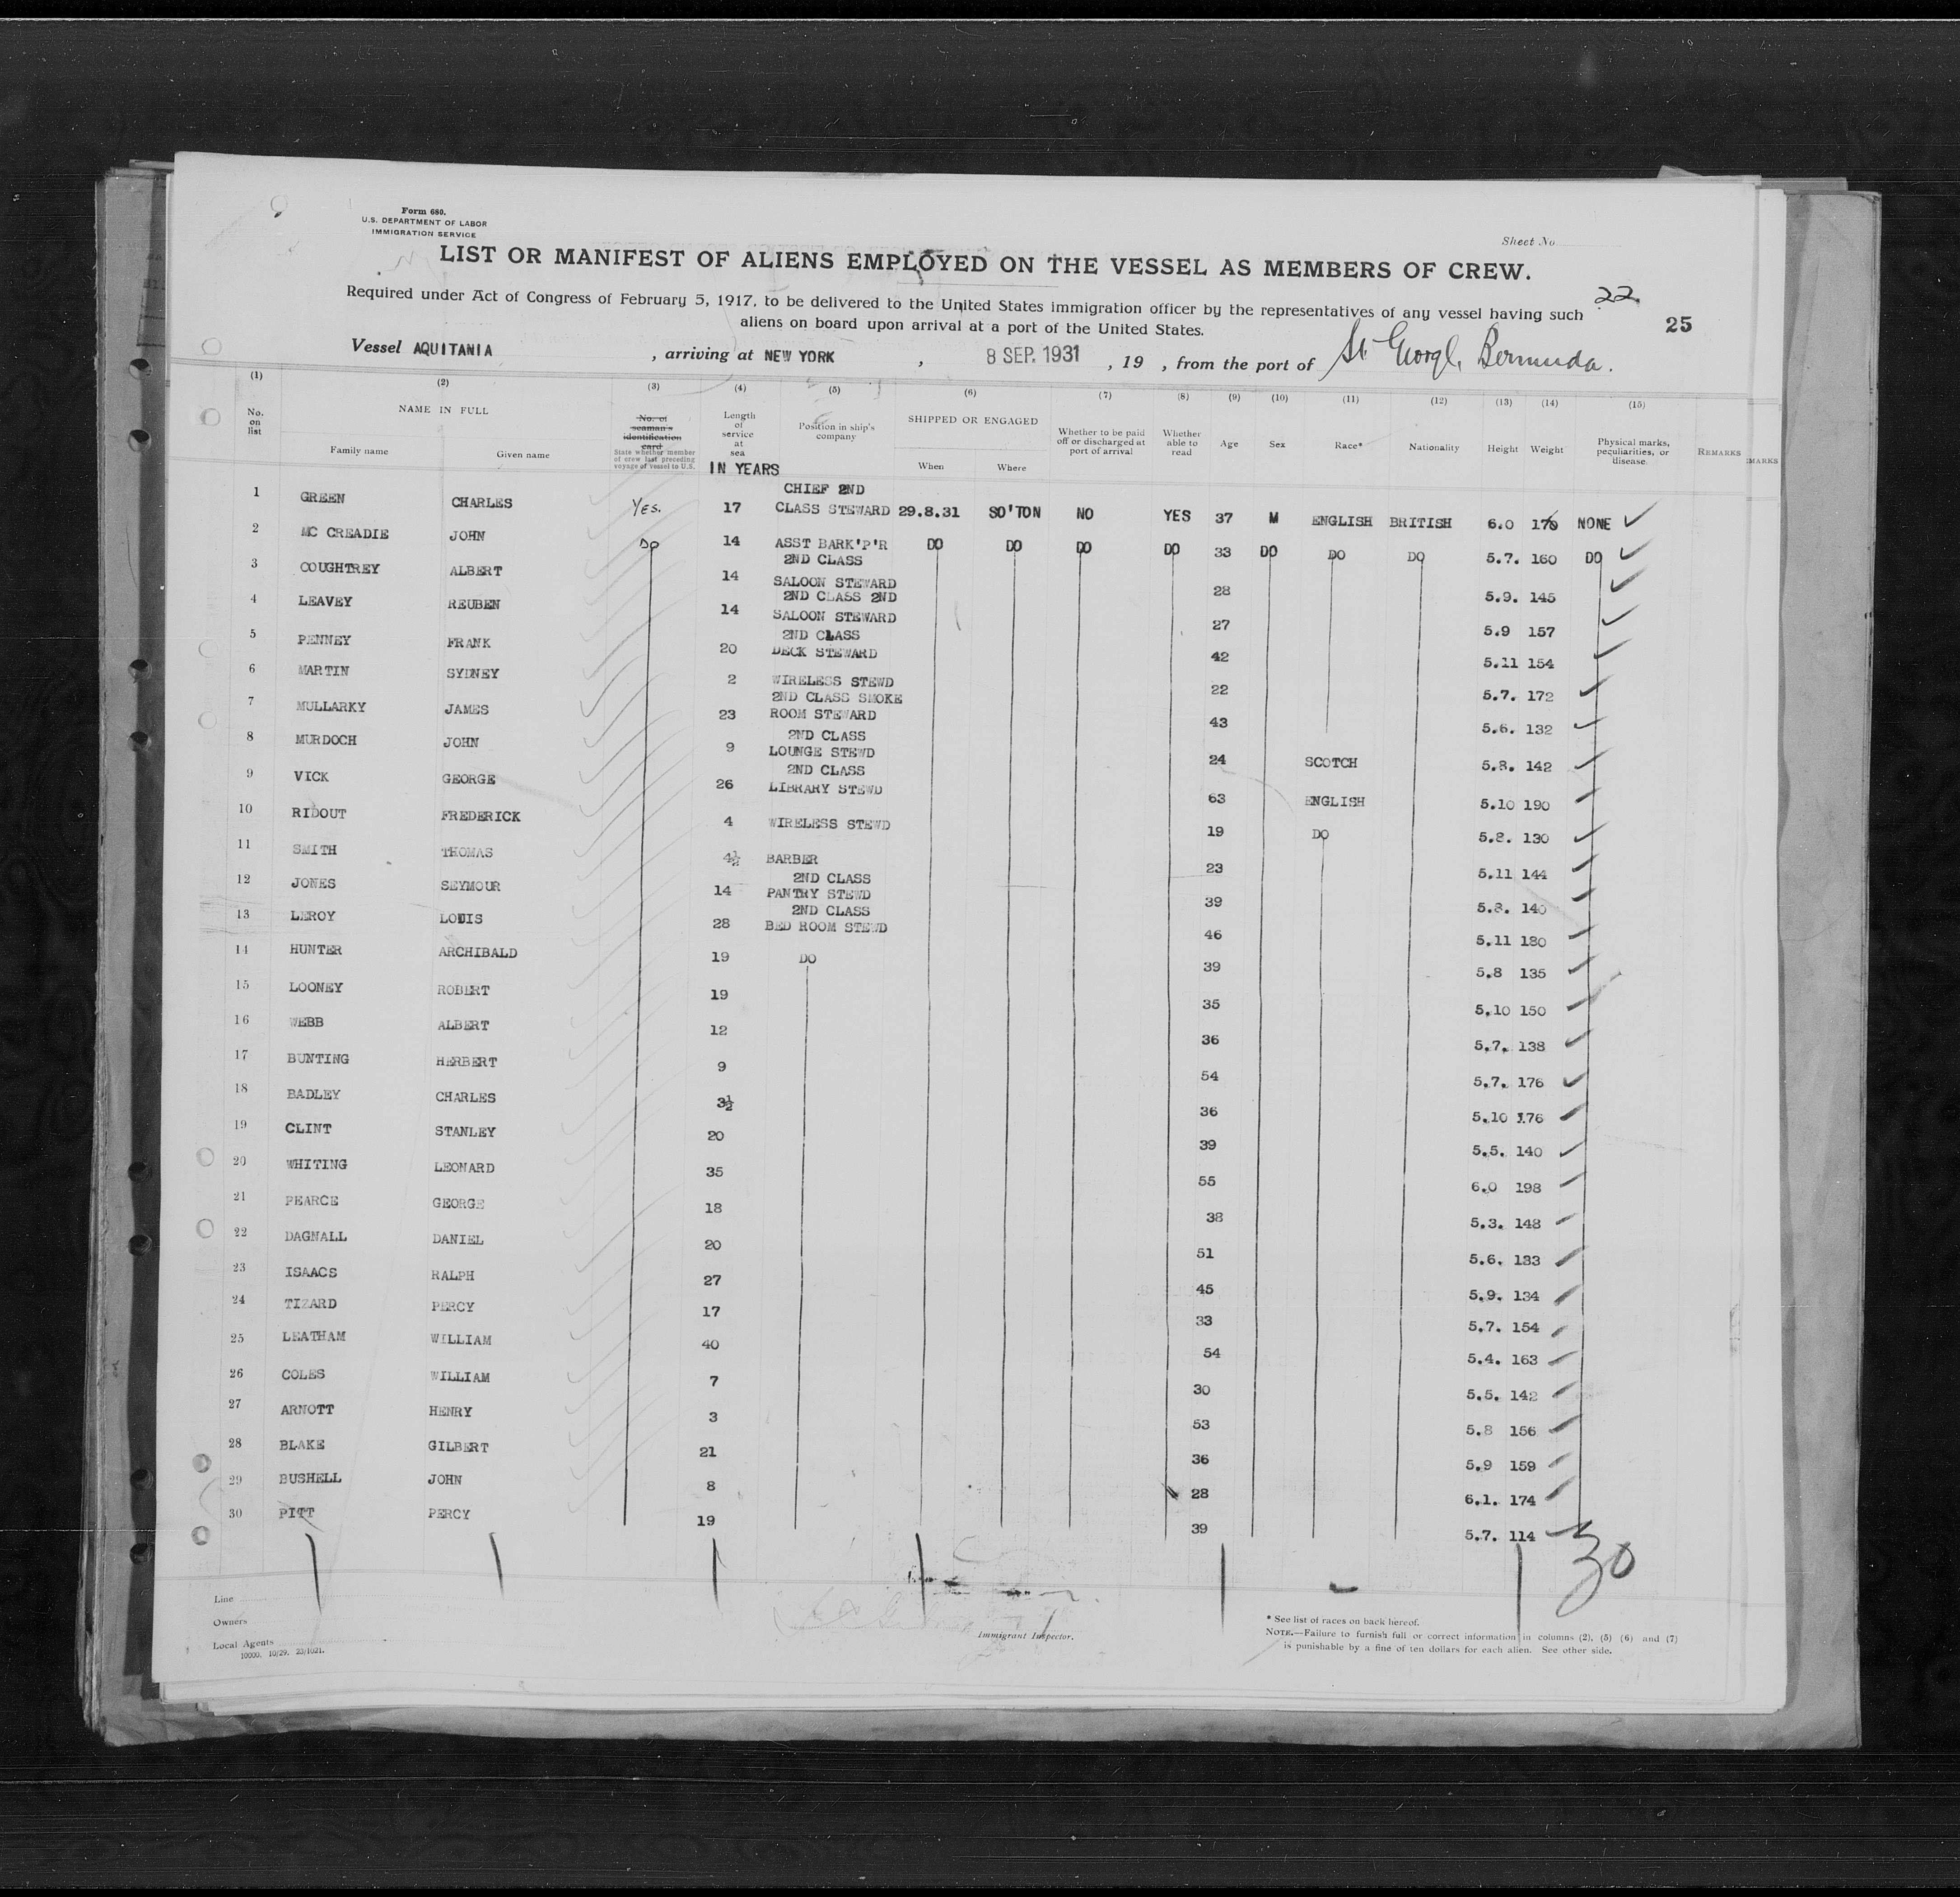 Form 680.
U.S. DEPARTMENT OF LABOR
IMMIGRATION SERVICE
Sheet No
LIST OR MANIFEST OF ALIENS EMPLOYED ON THE VESSEL AS MEMBERS OF CREW.
22
Required under Act of Congress of February 5, 1917, to be delivered to the United States immigration officer by the representatives of any vessel having such
25
aliens on board upon arrival at a port of the United States.
Vessel AQUITANIA , arriving at NEW YORK , 8 SEP. 1931 , 19 , from the port of St. George, Bermuda.
(1) (2) (3) (4) (5) (6) (7) (8) (9) (10) (11) (12) (13) (14) (15)
No. on list
NAME IN FULL
Family name
Given name
No. of seaman's identification card
State whether member of crew last preceding voyage of vessel to U.S.
Length of service at sea
IN YEARS
Position in ship's company
SHIPPED OR ENGAGED
When
Where
Whether to be paid off or discharged at port of arrival
Whether able to read
Age
Sex
Race*
Nationality
Height
Weight
Physical marks, peculiarities, or disease.
REMARKS
1 GREEN CHARLES Yes. 17 CHIEF 2ND CLASS STEWARD 29.8.31 SO'TON NO YES 37 M ENGLISH BRITISH 6.0 170 NONE
2 MC CREADIE JOHN DO 14 ASST BARK'P'R DO DO DO DO 33 DO DO DO 5.7. 160 DO
3 COUGHTREY ALBERT 14 2ND CLASS SALOON STEWARD 28 5.9. 145
4 LEAVEY REUBEN 14 2ND CLASS 2ND SALOON STEWARD 27 5.9 157
5 PENNEY FRANK 20 2ND CLASS DECK STEWARD 42 5.11 154
6 MARTIN SYDNEY 2 WIRELESS STEWD 22 5.7. 172
7 MULLARKY JAMES 23 2ND CLASS SMOKE ROOM STEWARD 43 5.6. 132
8 MURDOCH JOHN 9 2ND CLASS LOUNGE STEWD 24 SCOTCH 5.8. 142
9 VICK GEORGE 26 2ND CLASS LIBRARY STEWD 63 ENGLISH 5.10 190
10 RIDOUT FREDERICK 4 WIRELESS STEWD 19 DO 5.8. 130
11 SMITH THOMAS 4½ BARBER 23 5.11 144
12 JONES SEYMOUR 14 2ND CLASS PANTRY STEWD 39 5.8. 140
13 LEROY LOUIS 28 2ND CLASS BED ROOM STEWD 46 5.11 180
14 HUNTER ARCHIBALD 19 DO 39 5.8 135
15 LOONEY ROBERT 19 35 5.10 150
16 WEBB ALBERT 12 36 5.7. 138
17 BUNTING HERBERT 9 54 5.7. 176
18 BADLEY CHARLES 3½ 36 5.10 176
19 CLINT STANLEY 20 39 5.5. 140
20 WHITING LEONARD 35 55 6.0 198
21 PEARCE GEORGE 18 38 5.3. 148
22 DAGNALL DANIEL 20 51 5.6. 133
23 ISAACS RALPH 27 45 5.9. 134
24 TIZARD PERCY 17 33 5.7. 154
25 LEATHAM WILLIAM 40 54 5.4. 163
26 COLES WILLIAM 7 30 5.5. 142
27 ARNOTT HENRY 3 53 5.8 156
28 BLAKE GILBERT 21 36 5.9 159
29 BUSHELL JOHN 8 28 6.1. 174
30 PITT PERCY 19 39 5.7. 114
30
Line
Owners
Local Agents
10000. 10/29. 23/1021.
Immigrant Inspector.
* See list of races on back hereof.
NOTE.—Failure to furnish full or correct information in columns (2), (5) (6) and (7)
is punishable by a fine of ten dollars for each alien. See other side.